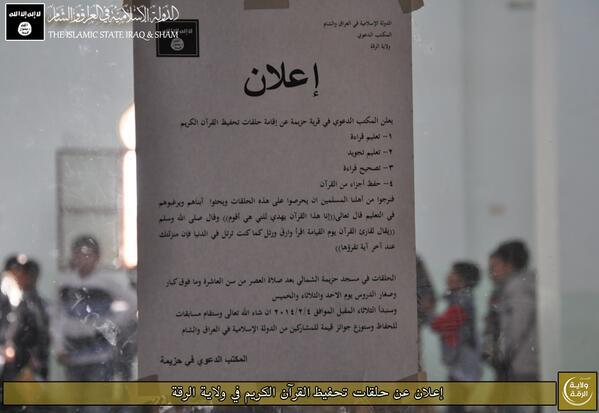 الدولة الإسلامية في العراق والشام
THE ISLAMIC STATE IRAQ & SHAM
الدولة الإسلامية في العراق والشام
المكتب الدعوي
ولاية الرقة
إعلان
يعلن المكتب الدعوي في قرية حزيمة عن إقامة حلقات تحفيظ القرآن الكريم
١- تعليم قراءة
٢- تعليم تجويد
٣- تصحيح قراءة
٤- حفظ أجزاء من القرآن
فنرجوا من أهلنا المسلمين ان يحرصوا على هذه الحلقات ويحثوا أبناهم ويرغبوهم
في التعليم قال تعالى((إنا هذا القرآن يهدي للتي هي أقوم)) وقال صلى الله وسلم
((يقال لقارئ القرآن يوم القيامة اقرأ وارق ورتل كما كنت ترتل في الدنيا فإن منزلتك
عند آخر آية تقرؤها))
الحلقات في مسجد حزيمة الشمالي بعد صلاة العصر من سن العاشرة وما فوق كبار
وصغار الدروس يوم الاحد والثلاثاء والخميس
وسنبدأ الثلاثاء المقبل الموافق ٢٠١٤/٢/٤ ان شاء الله تعالى وستقام مسابقات
للحفاظ وستوزع جوائز قيمة للمشاركين من الدولة الإسلامية في العراق والشام
المكتب الدعوي في حزيمة
إعلان عن حلقات تحفيظ القرآن الكريم في ولاية الرقة
ولاية
الرقة